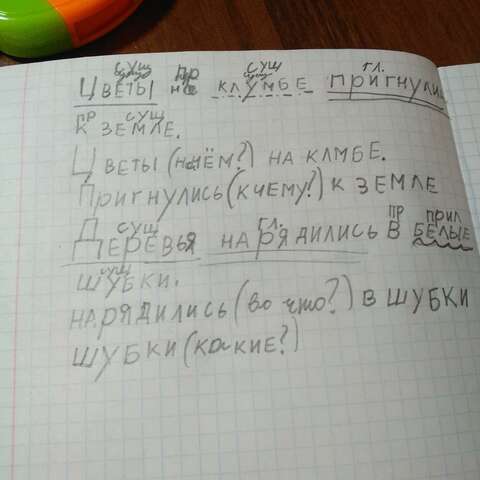 сущ пр сущ гл.
Цветы на клумбе пригнулись
пр сущ
к земле.
Цветы (на чём?) на клмбе.
Пригнулись (к чему?) к земле
сущ гл. пр прил
Деревья нарядились в белые
сущ
шубки.
нарядились (во что?) в шубки
шубки (какие?)